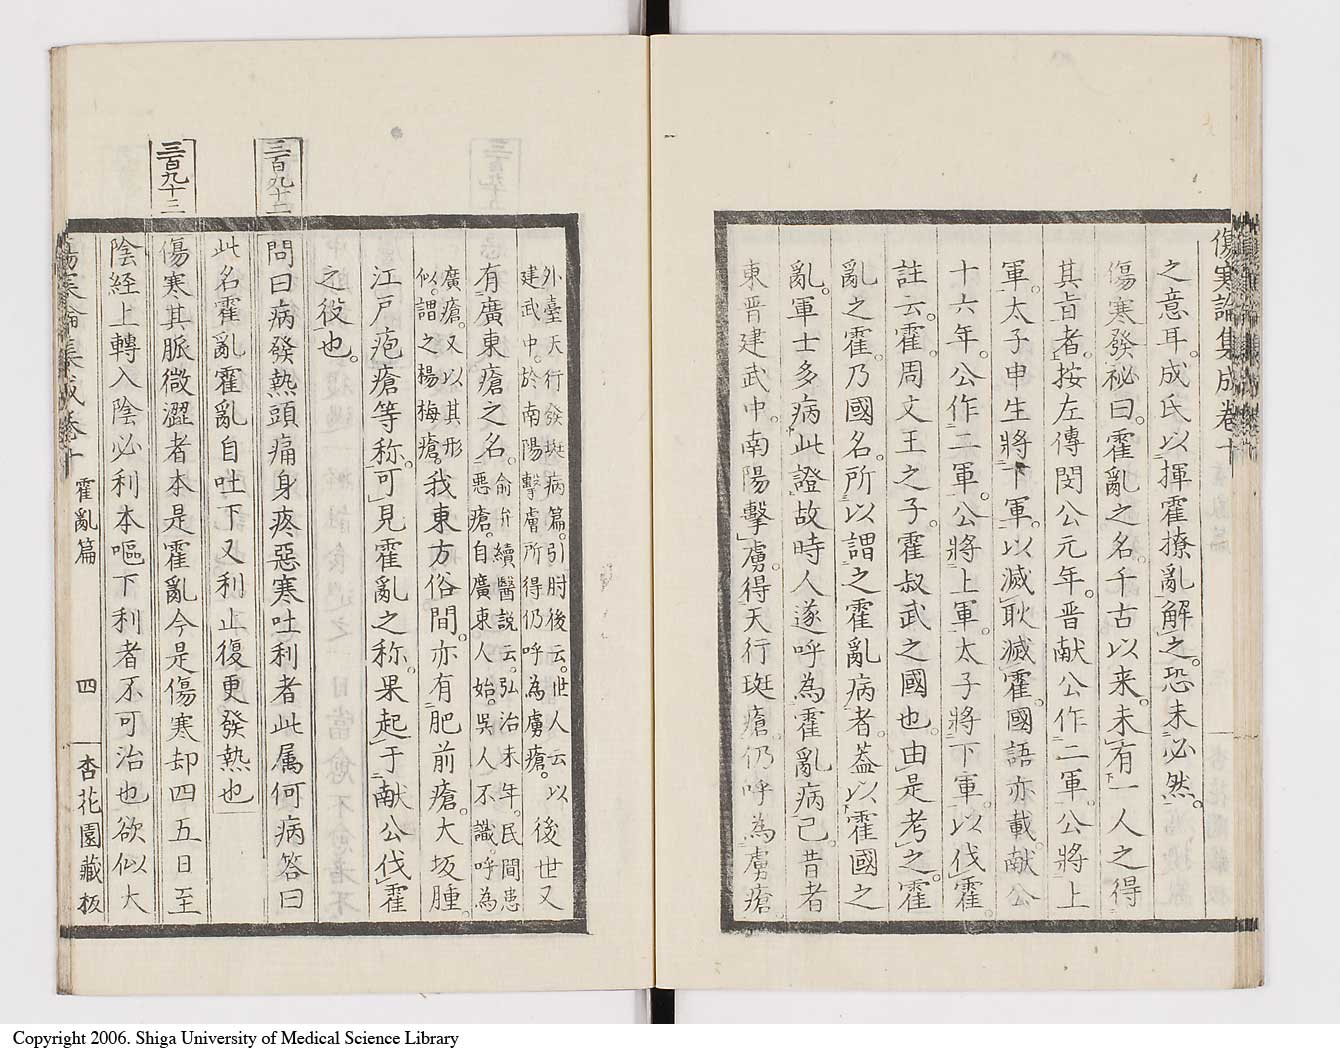 傷寒論集成卷十
之意耳。成氏以揮霍撩亂解之。恐未必然。
傷寒發祕曰。霍亂之名。千古以来。未有一人之得
其旨者。按左傳閔公元年。晋献公作二軍。公將上
軍。太子申生將下軍。以滅耿滅霍。國語亦載。献公
十六年。公作二軍。公將上軍。太子將下軍。以伐霍。
註云。霍。周文王之子。霍叔武之國也。由是考之。霍
亂之霍。乃國名。所以謂之霍亂病者。蓋以霍國之
亂。軍士多病此證。故時人遂呼為霍亂病已。昔者
東晋建武中。南陽擊虜。得天行斑瘡。仍呼為虜瘡。
外臺天行發斑病篇。引肘後云。世人云。以
建武中。於南陽擊虜所得仍呼為虜瘡。
後世又
有廣東瘡之名。
俞弁續醫説云。弘治末年。民間患
惡瘡。自廣東人始。吳人不識。呼為
廣瘡。又以其形
似。謂之楊梅瘡。
我東方俗間。亦有肥前瘡。大坂腫。
江戸疱瘡等称。可見霍亂之称。果起于献公伐霍
之役也。
三百九十二
問曰病發熱頭痛身疼惡寒吐利者此属何病答曰
此名霍亂霍亂自吐下又利止復更發熱也
三百九十三
傷寒其脈微澀者本是霍亂今是傷寒却四五日至
陰経上轉入陰必利本嘔下利者不可治也欲似大
傷寒論集成卷十
霍亂篇
四
杏花園藏板
Copyright 2006. Shiga University of Medical Science Library